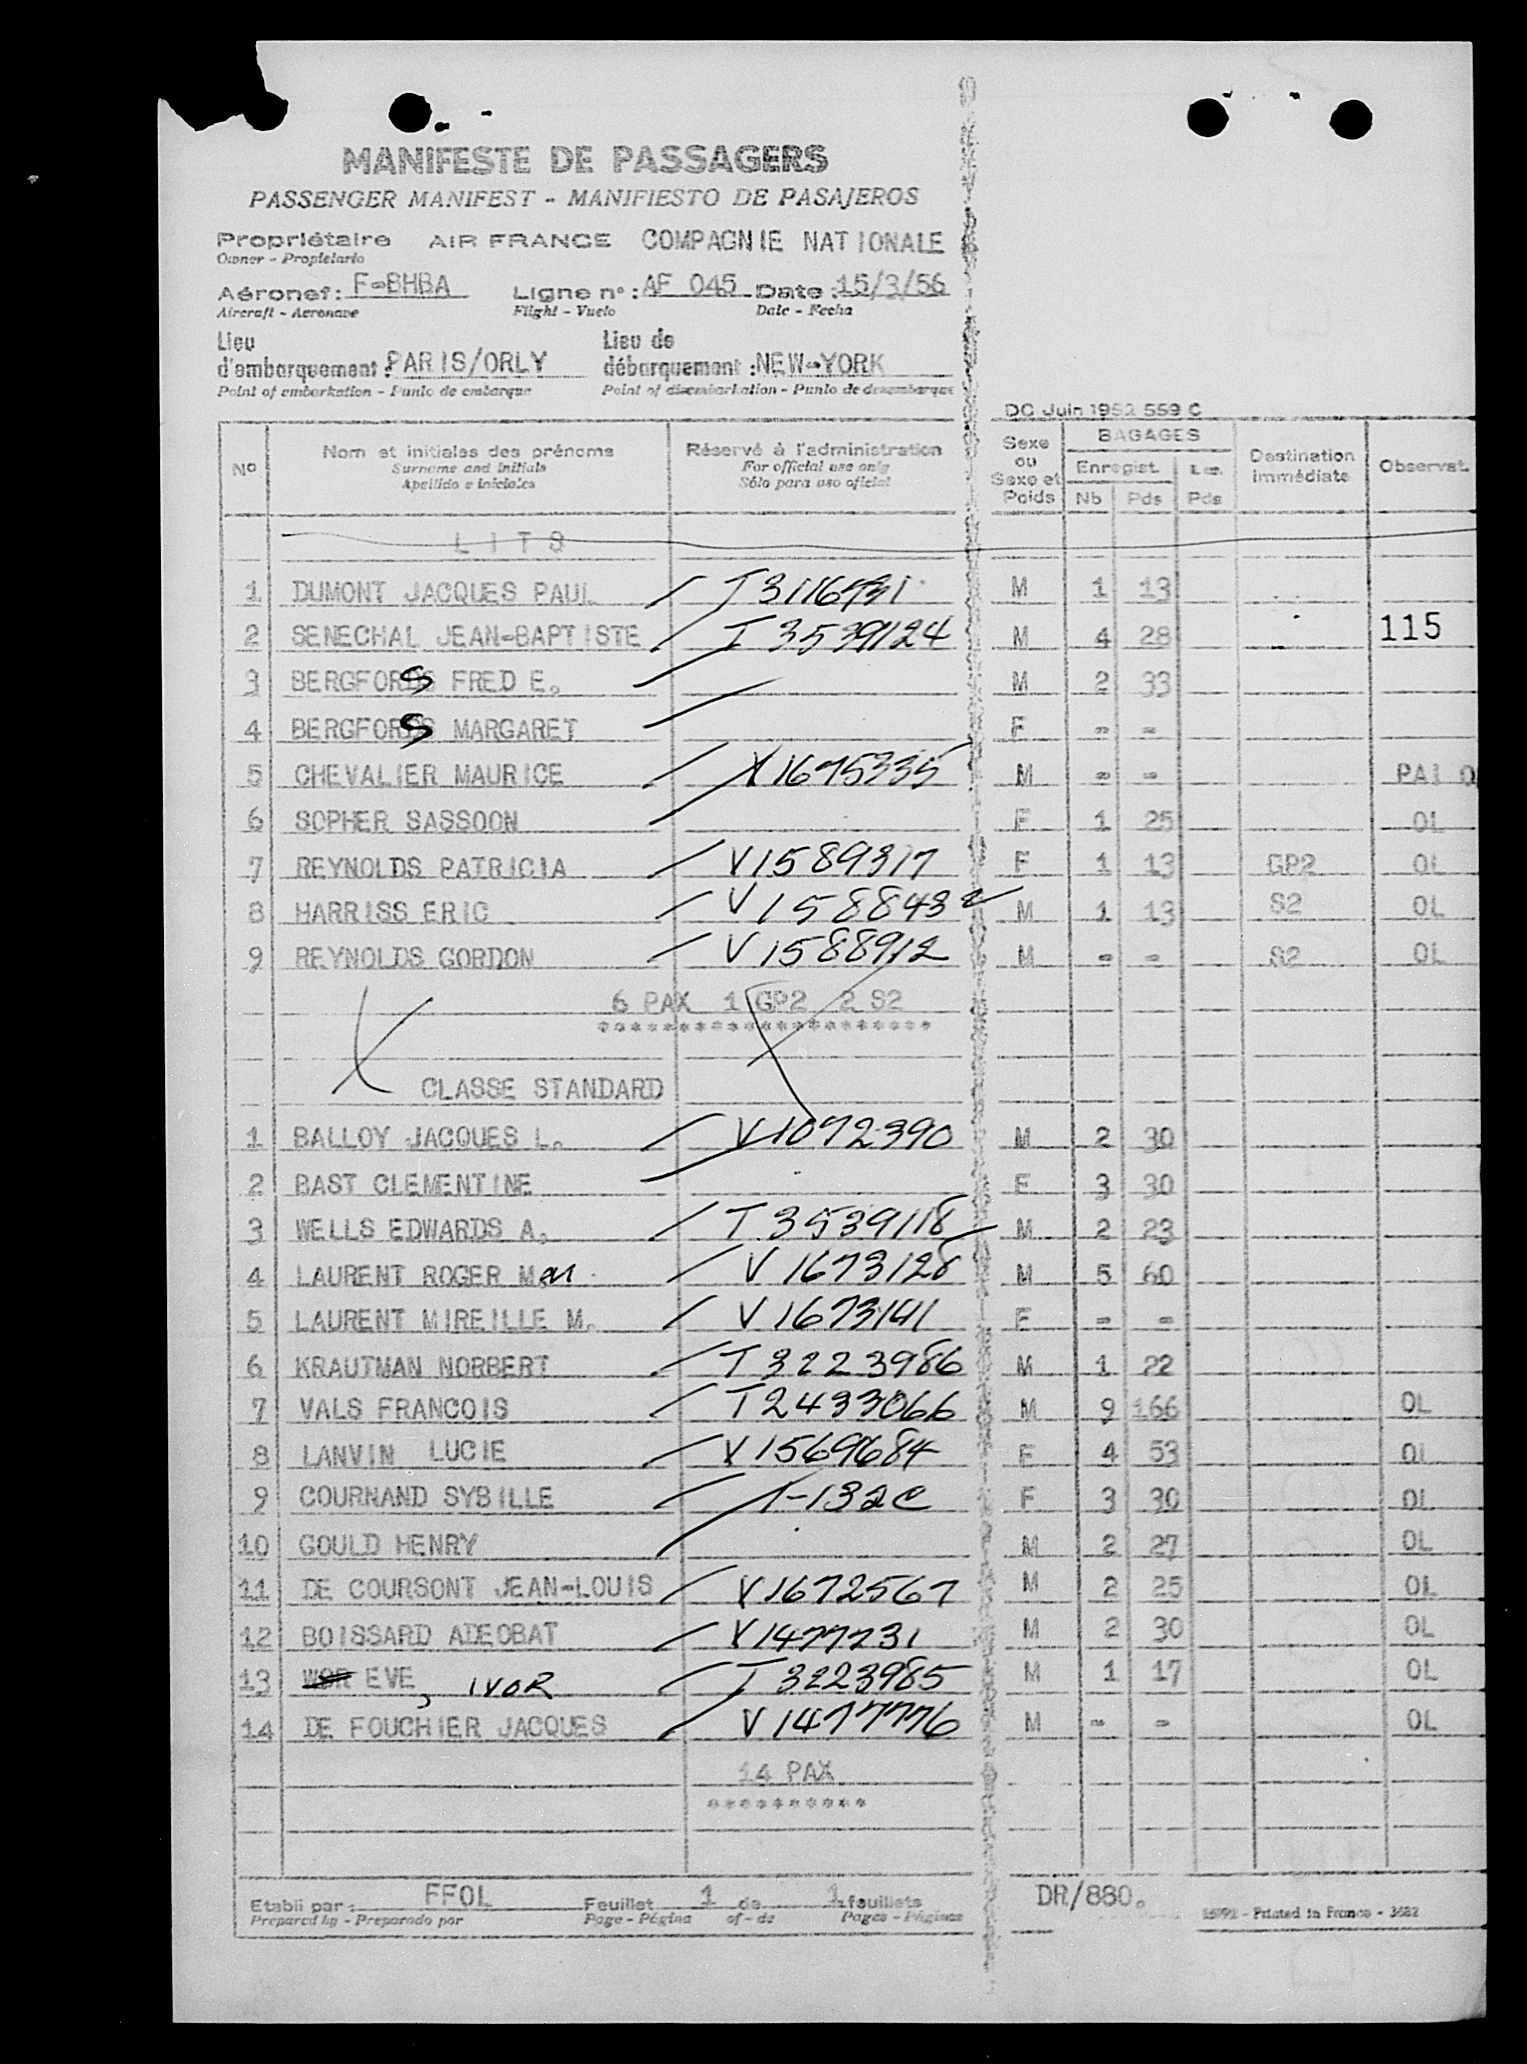 MANIFESTE DE PASSAGERS
PASSENGER MANIFEST - MANIFIESTO DE PASAJEROS
Propriétaire AIR FRANCE COMPAGNIE NATIONALE
Owner - Propietario
Aéronef : F-BHBA Ligne n° : AF 045 Date : 15/3/56
Aircraft - Aeronave Flight - Vuelo Date - Fecha
Lieu d'embarquement : PARIS/ORLY Lieu de débarquement : NEW-YORK
Point of embarkation - Punto de embarque Point of disembarkation - Punto de desembarque
DC Juin 1952 559 C
Nº Nom et initiales des prénoms Réservé à l'administration Sexe ou Sexe et Poids BAGAGES Destination immédiate Observat.
Surname and initials For official use only Enregist.
Apellido e iniciales Sólo para uso oficial Nb Pds Pds
LITS
1 DUMONT JACQUES PAUL T 3116731 M 1 13
2 SENECHAL JEAN-BAPTISTE T 3539124 M 4 28 115
3 BERGFORS FRED E. M 2 33
4 BERGFORS MARGARET F - -
5 CHEVALIER MAURICE V 1675335 M - - PAI O
6 SOPHER SASSOON F 1 25 OL
7 REYNOLDS PATRICIA V 1589317 F 1 13 GP2 OL
8 HARRISS ERIC V 1588432 M 1 13 S2 OL
9 REYNOLDS GORDON V 1588912 M - - S2 OL
6 PAX 1 GP2 2 S2
*********************
CLASSE STANDARD
1 BALLOY JACQUES L. V 1072390 M 2 30
2 BAST CLEMENTINE F 3 30
3 WELLS EDWARDS A. T 3539118 M 2 23
4 LAURENT ROGER M. V 1673128 M 5 60
5 LAURENT MIREILLE M. V 1673141 F - -
6 KRAUTMAN NORBERT T 3223986 M 1 22
7 VALS FRANCOIS T 2433066 M 9 166 OL
8 LANVIN LUCIE V 1569684 F 4 53 OL
9 COURNAND SYBILLE 1-132c F 3 30 OL
10 GOULD HENRY M 2 27 OL
11 DE COURSONT JEAN-LOUIS V 1672567 M 2 25 OL
12 BOISSARD ADEOBAT V 1477731 M 2 30 OL
13 EVE, IVOR T 3223985 M 1 17 OL
14 DE FOUCHIER JACQUES V 1477776 M - - OL
14 PAX
**********
Etabli par : FFOL Feuillet 1 de 1 feuillets DR/880.
Prepared by - Preparado por Page - Página of - de Pages - Páginas Printed in France - 3682